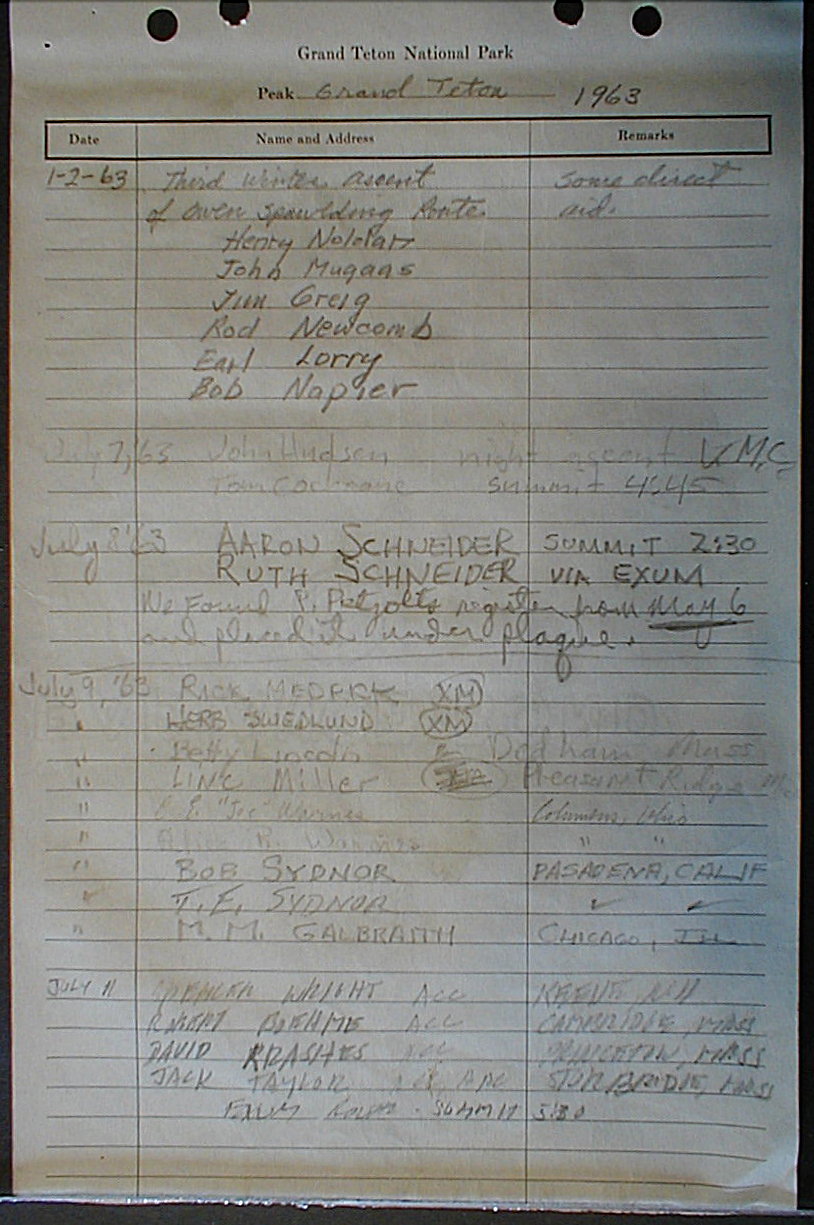 Grand Teton National Park
Peak Grand Teton 1963
Date Name and Address Remarks
1-2-63 Third Winter ascent Some direct
of Owen Spawlding Route. aid.
Henry
John Mugaas
Jim Greig
Rod Newcomb
Earl Lorry
Bob Napier
July 7, '63 John Hudson night ascent V.M.C.
Tom Cochrane summit 4:45
July 8 '63 AARON SCHNEIDER SUMMIT 2:30
RUTH SCHNEIDER VIA EXUM
We Found P. Petzolts register from May 6
and placed it under plaque.
July 9, '63 RICK MEDRICK XM
" HERB SWEDLUND XM
" Betty Lincoln Dedham Mass
" LINC Miller Pleasant Ridge
" "Joe" Columbus, Ohio
" Alice " "
" BOB SYDNOR PASADENA, CALIF
✓ T. E. SYDNOR ✓ ✓
" M. M. GALBRAITH CHICAGO, ILL
JULY 11 SPENCER WRIGHT ACC KEENE, NH
ROBERT BOEHME ACC CAMBRIDGE, MASS
DAVID KRASHES ACC PRINCETON, MASS
JACK TAYLOR STURBRIDGE, MASS
EXUM Route - SUMMIT